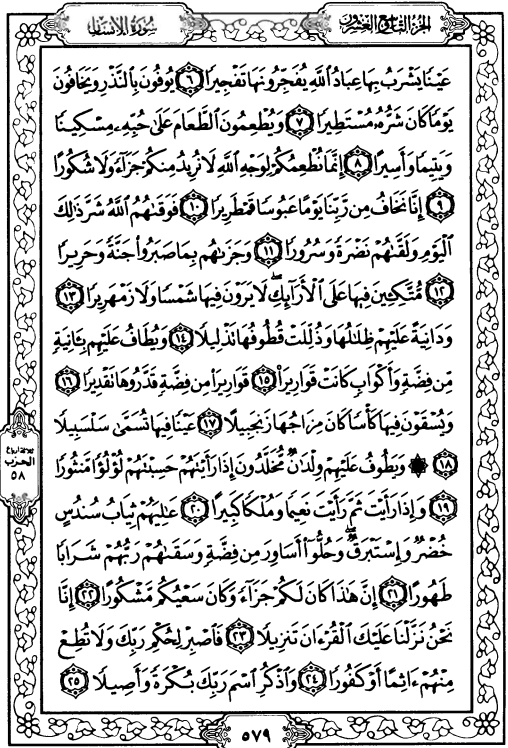 سُورَةُ الإِنسَان
الجزء التاسع والعشرون
عَيْنًا يَشْرَبُ بِهَا عِبَادُ اللَّهِ يُفَجِّرُونَهَا تَفْجِيرًا ٦ يُوفُونَ بِالنَّذْرِ وَيَخَافُونَ
يَوْمًا كَانَ شَرُّهُ مُسْتَطِيرًا ٧ وَيُطْعِمُونَ الطَّعَامَ عَلَى حُبِّهِ مِسْكِينًا
وَيَتِيمًا وَأَسِيرًا ٨ إِنَّمَا نُطْعِمُكُمْ لِوَجْهِ اللَّهِ لَا نُرِيدُ مِنكُمْ جَزَاءً وَلَا شُكُورًا
٩ إِنَّا نَخَافُ مِن رَّبِّنَا يَوْمًا عَبُوسًا قَمْطَرِيرًا ١٠ فَوَقَىٰهُمُ اللَّهُ شَرَّ ذَٰلِكَ
الْيَوْمِ وَلَقَّىٰهُمْ نَضْرَةً وَسُرُورًا ١١ وَجَزَىٰهُم بِمَا صَبَرُوا جَنَّةً وَحَرِيرًا
١٢ مُّتَّكِئِينَ فِيهَا عَلَى الْأَرَآئِكِ ۖ لَا يَرَوْنَ فِيهَا شَمْسًا وَلَا زَمْهَرِيرًا ١٣
وَدَانِيَةً عَلَيْهِمْ ظِلَٰلُهَا وَذُلِّلَتْ قُطُوفُهَا تَذْلِيلًا ١٤ وَيُطَافُ عَلَيْهِم بِـَٔانِيَةٍ
مِّن فِضَّةٍ وَأَكْوَابٍ كَانَتْ قَوَارِيرَا ١٥ قَوَارِيرَا مِن فِضَّةٍ قَدَّرُوهَا تَقْدِيرًا ١٦
وَيُسْقَوْنَ فِيهَا كَأْسًا كَانَ مِزَاجُهَا زَنجَبِيلًا ١٧ عَيْنًا فِيهَا تُسَمَّىٰ سَلْسَبِيلًا
١٨ ۞ وَيَطُوفُ عَلَيْهِمْ وِلْدَٰنٌ مُّخَلَّدُونَ إِذَا رَأَيْتَهُمْ حَسِبْتَهُمْ لُؤْلُؤًا مَّنثُورًا
١٩ وَإِذَا رَأَيْتَ ثَمَّ رَأَيْتَ نَعِيمًا وَمُلْكًا كَبِيرًا ٢٠ عَٰلِيَهُمْ ثِيَابُ سُندُسٍ
خُضْرٌ وَإِسْتَبْرَقٌ ۖ وَحُلُّوا أَسَاوِرَ مِن فِضَّةٍ وَسَقَىٰهُمْ رَبُّهُمْ شَرَابًا
طَهُورًا ٢١ إِنَّ هَٰذَا كَانَ لَكُمْ جَزَاءً وَكَانَ سَعْيُكُم مَّشْكُورًا ٢٢ إِنَّا
نَحْنُ نَزَّلْنَا عَلَيْكَ الْقُرْءَانَ تَنزِيلًا ٢٣ فَاصْبِرْ لِحُكْمِ رَبِّكَ وَلَا تُطِعْ
مِنْهُمْ ءَاثِمًا أَوْ كَفُورًا ٢٤ وَاذْكُرِ اسْمَ رَبِّكَ بُكْرَةً وَأَصِيلًا ٢٥
ثلاثة أرباع
الحزب
٥٨
٥٧٩